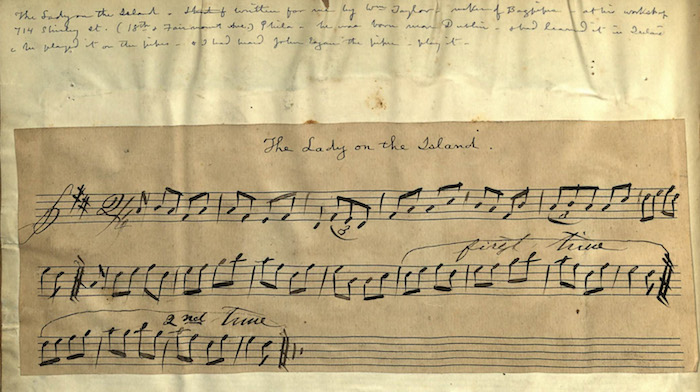 The Lady on the Island. written for me by Wm Taylor, maker of Bagpipes at his workshop
714 Shirley St. (18th & Fairmount Ave.) Phila. he was born near Dublin had learned it in
& he played it on the pipes & I had heard John Egan the piper play it
The Lady on the Island.
2/4
3
3
first time
2nd time